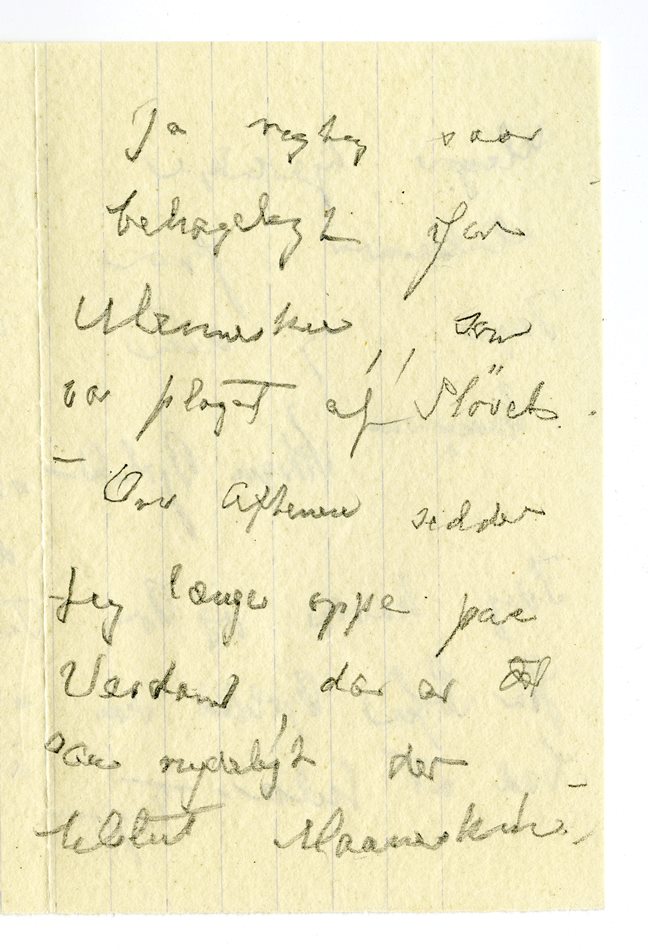 Ja rigtig saa
behageligt for
Mennesker som
var plaget af Støvet.
– Om Aftenen sidder
Jeg længe oppe paa
Verdant, der er
saa nydeligt der
Maaneskin,